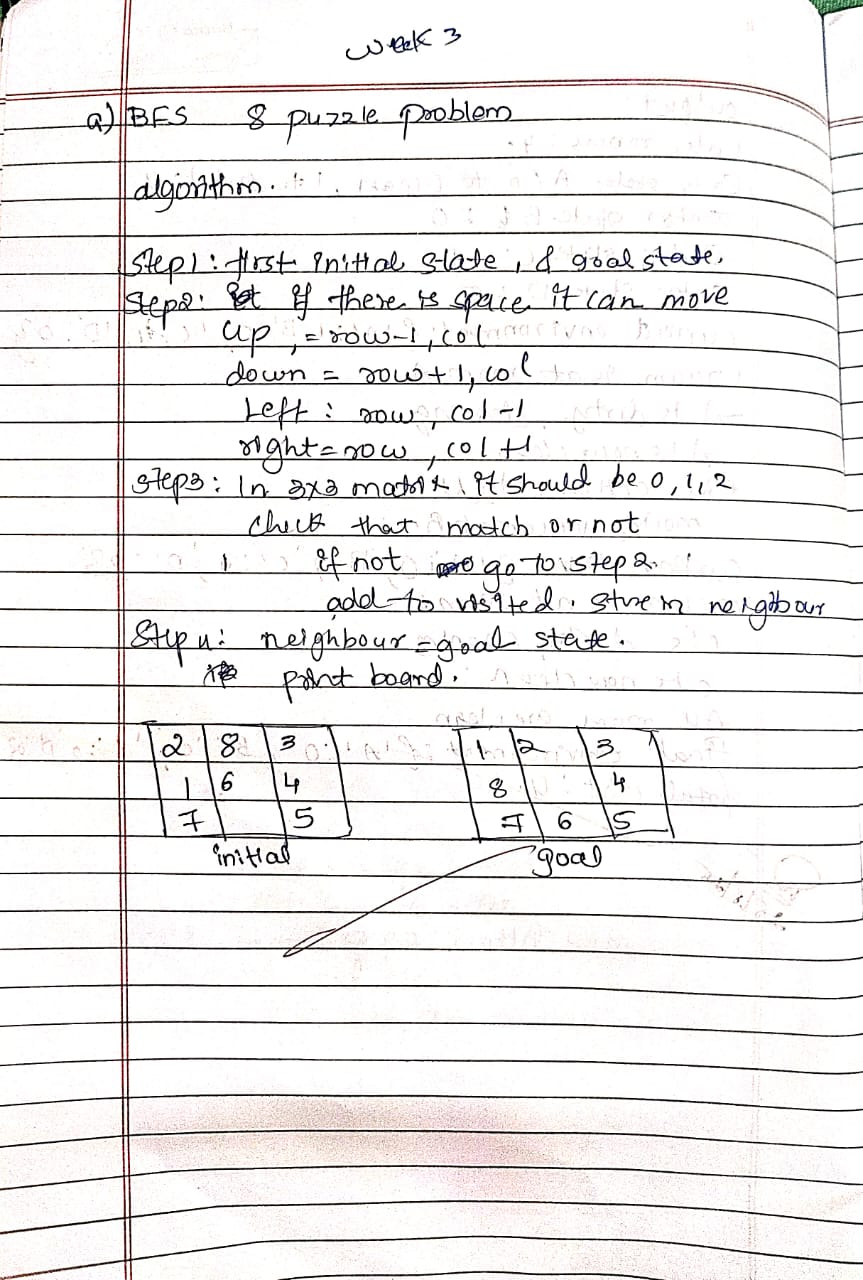 week 3
a) BFS 8 puzzle problem
algorithm.
Step1: first initial state, & goal state.
Step2: if there is space it can move
up, = row-1, col
down = row+1, col
Left : row, col-1
right = row, col+1
Step3: In 3x3 matrix, it should be 0,1,2
check that match or not
if not go to step 2.
add to visited. store in neigbour
Step 4: neighbour = goal state.
print board.
2 8 3 1 2 3
1 6 4 8 4
7 5 7 6 5
initial goal